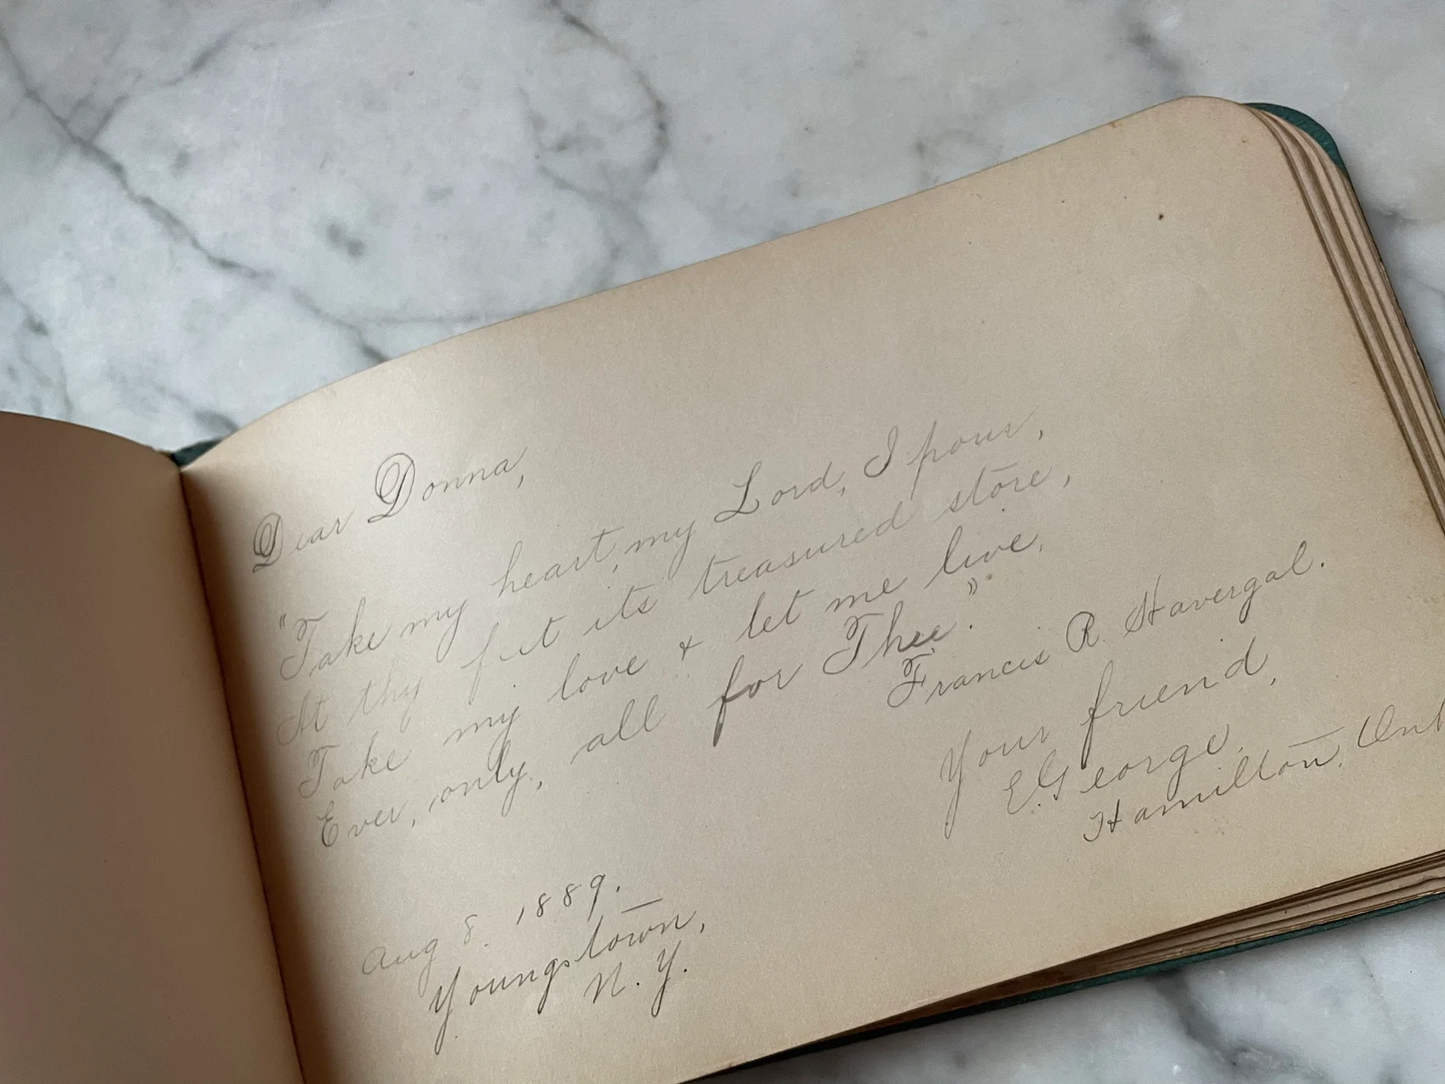 Dear Donna,
"Take my heart, my Lord, I pour,
At thy feet its treasured store,
Take my love & let me live,
Ever, only, all for Thee."
Francis R Havergal.
Your friend,
E. George,
Hamilton, Ont
Aug 8. 1889.
Youngstown,
N. Y.